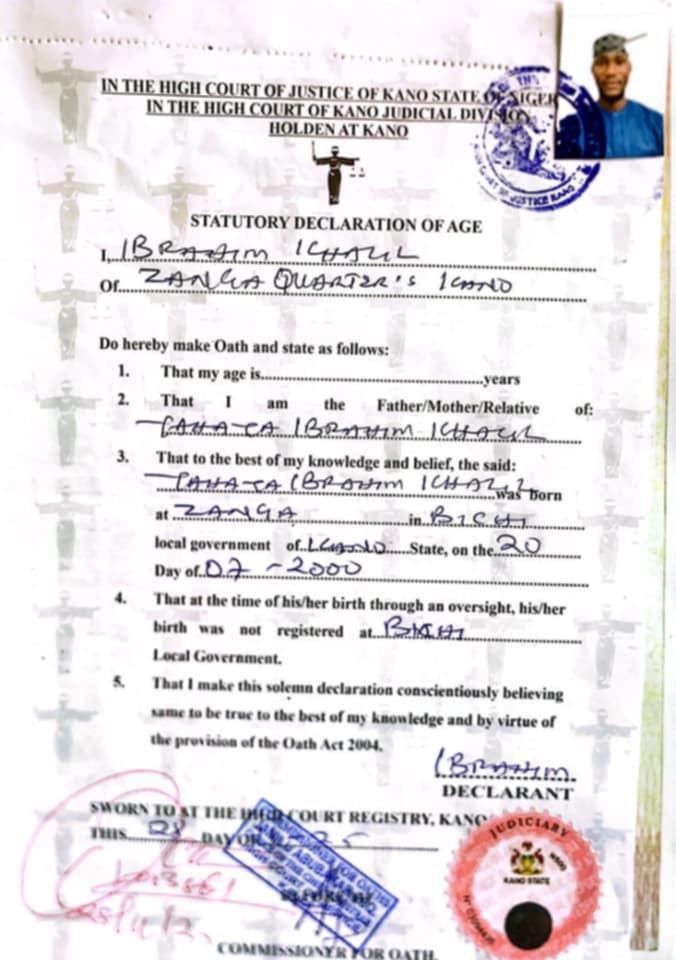 IN THE HIGH COURT OF JUSTICE OF KANO STATE OF NIGER
IN THE HIGH COURT OF KANO JUDICIAL DIVISION
HOLDEN AT KANO
STATUTORY DECLARATION OF AGE
I, IBRAHIM ICHALIL
Of ZANGA QUARTER'S KANO
Do hereby make Oath and state as follows:
1. That my age is....................years
2. That I am the Father/Mother/Relative of:
IBRAHIM ICHALIL
3. That to the best of my knowledge and belief, the said:
IBRAHIM ICHALIL was born
at ZANGA in BICHI
local government of KANO State, on the 20
Day of 07 -2000
4. That at the time of his/her birth through an oversight, his/her
birth was not registered at BICHI
Local Government.
5. That I make this solemn declaration conscientiously believing
same to be true to the best of my knowledge and by virtue of
the provision of the Oath Act 2004.
IBRAHIM
DECLARANT
SWORN TO AT THE HIGH COURT REGISTRY, KANO
THIS DAY OF
JUDICIARY
KANO STATE
COMMISSIONER FOR OATH.